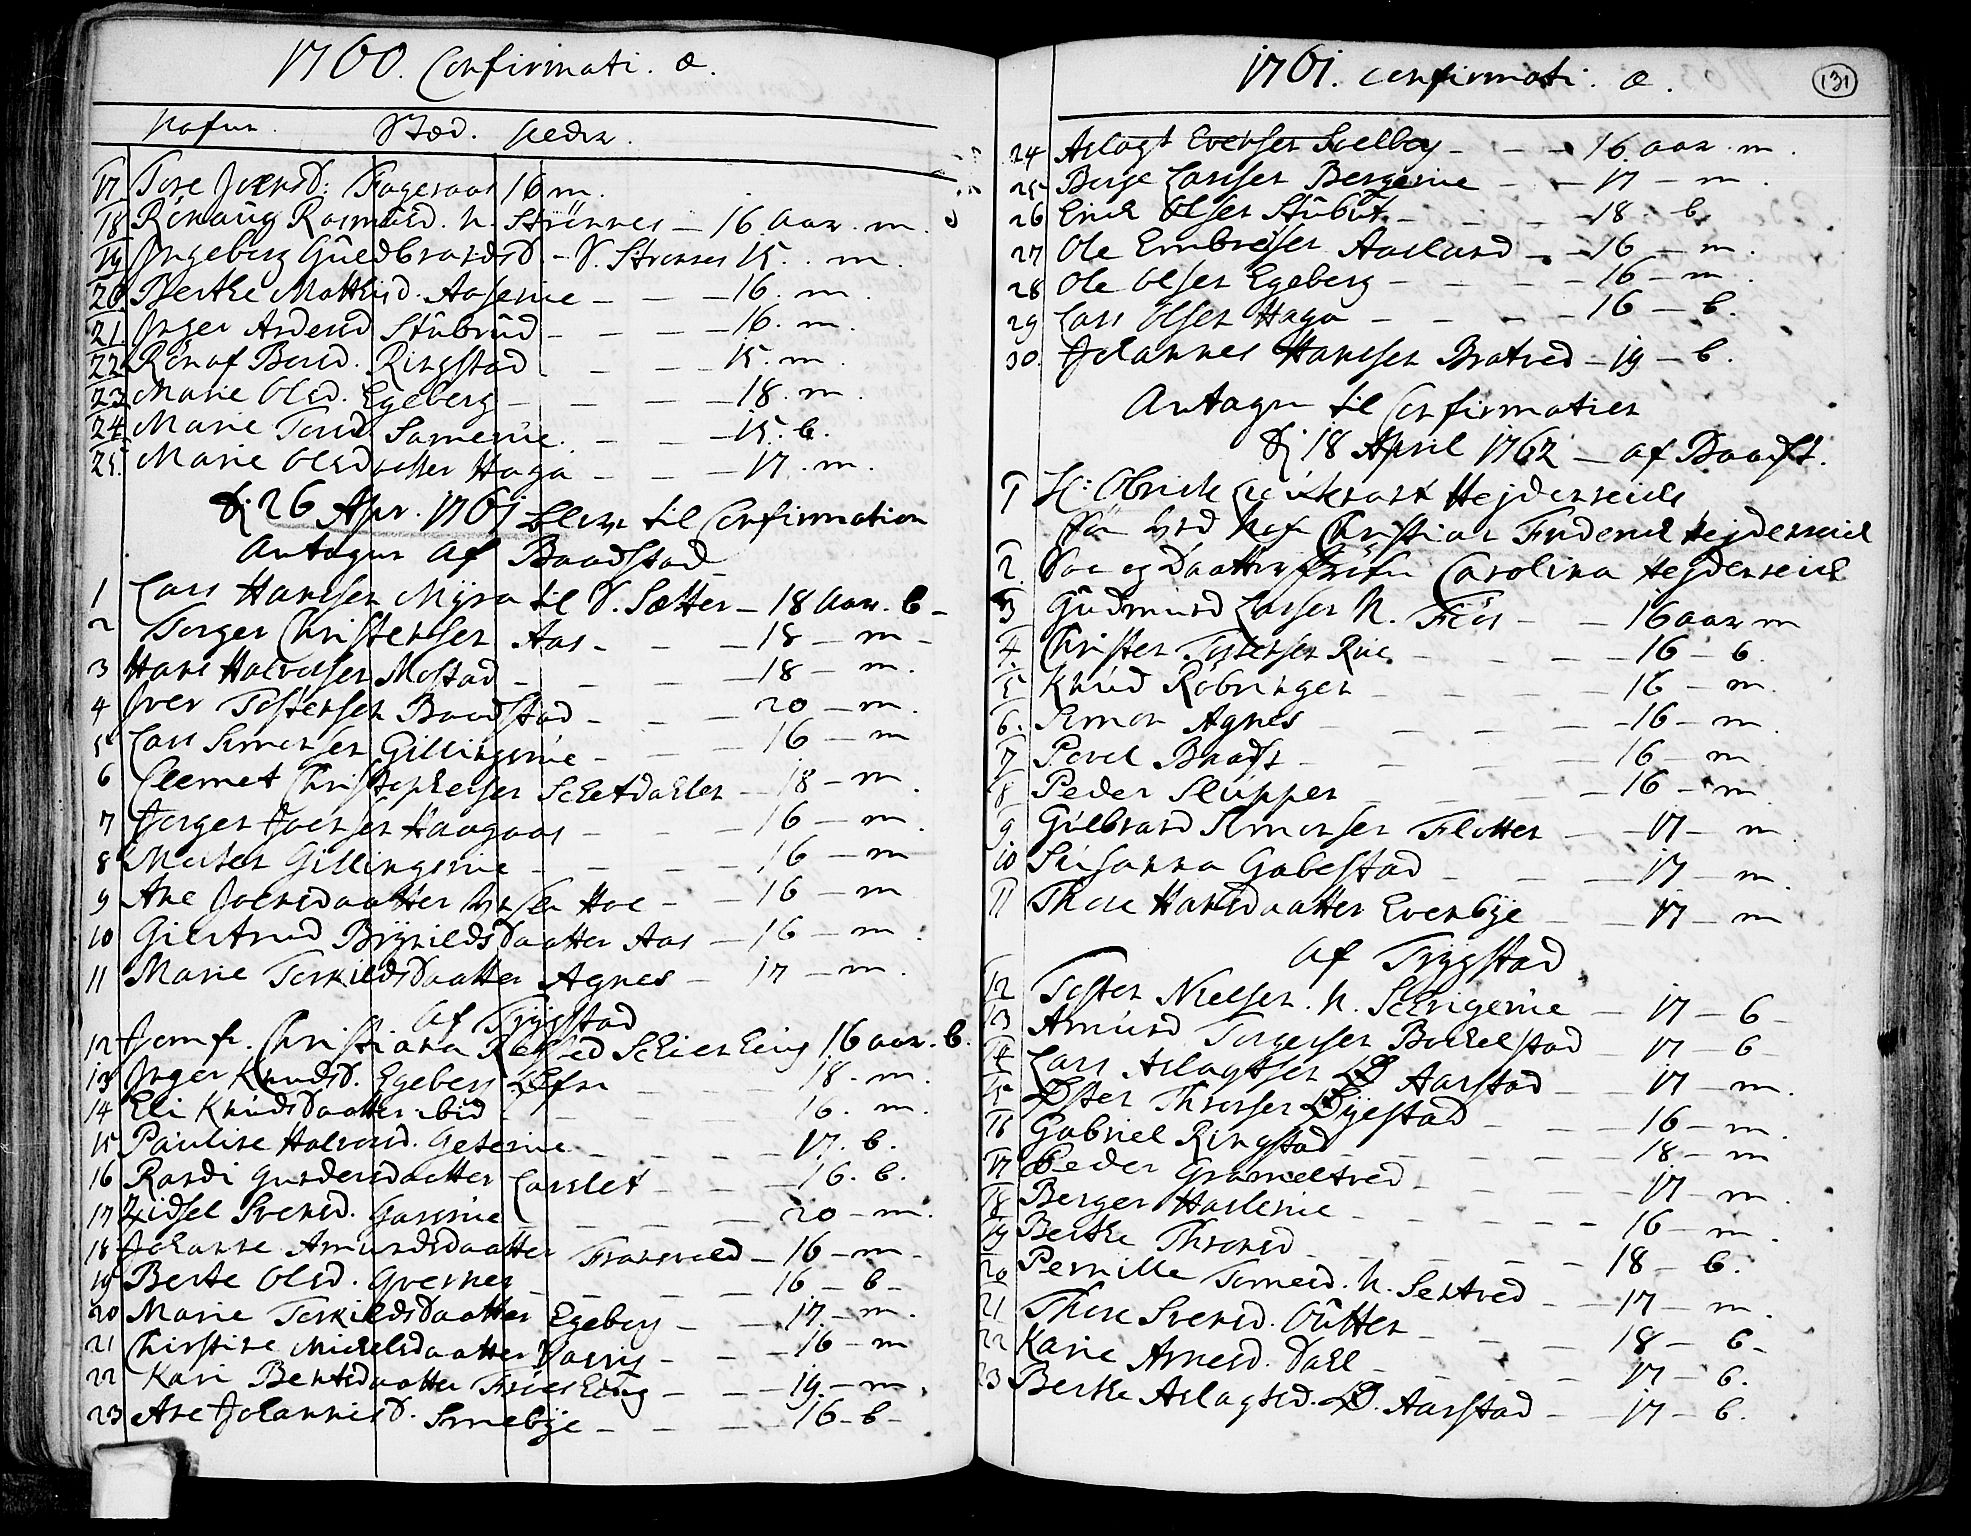 1760. Confirmati. æ.
Nafn. Stæd. Aeder.
17 Tore Joensd: Fageraas 16 m.
18 Rönaug Rasmusd. N. Strönnes – 16 Aar. m.
19 Ingeborg Guldbrandsd – S. Strønes 15. m.
20. Berthe Mathisd. Aaserüe – – – 16. m.
21. Inger Andersd Stübrüd – – – 16. m.
22. Rönaf Bersd. Ringstad – – – 15. m.
23 Marie Olsd. Egeberg – – – 18. m.
24 Marie Torsd Samerüe. – – – 15. b.
25. Marie Olsdaatter Haga – – – 17. m.
d. 26 Apr. 1761 bleve til Confirmation
Antagne af Baadstad
1 Lars Hansen Myra til S. Sætter – 18 Aar. b –
2 Torger Christensen Aas – – – 18 – m –
3 Hans Halvorsen Mostad – – – 18 – m.
4 Iver Tostensen Baadstad – – – 20 – m.
5 Lars Simensen Gillingsrüe – – – 16 – m
6 Clemet Christophersen Schetdahlen – 18 – m.
7 Jørgen Joensen Haagaas – – – 16 – m.
8 Morten Gillingsrüe – – – 16 – m
9 Ane Joensdaatter Hoe – – 16 – m
10 Giertrud Brynildsdaatter Aas – 16 – m.
11 Marie Terkildsdaatter Agnes – 17 – m.
Af Trygstad
12 Jomfr. Christiana Schierling 16 aar. b.
13 Inger Knudsd. Egeberg – – 18. m.
14 Eli Knudsdaatter ibid – – – 16. m.
15 Pauline Halvorsd. Geterüe – – – 17. b.
16 Randi Gundersdaatter Larslet – – – 16. b.
17 Zidsel Svensd. Gaserüe – – – 20 – m.
18 Johanne Amundsdaatter Fransvold – 16 – m –
19 Berte Olsd. Gverner – – – 16 – b –
20 Marie Terkildsdaatter Egeberg – – 17 – m.
21 Christine Michelsdaatter – – – 16 – m
22 Kari Bentsdaatter – – – 19. – m.
23 Ane Johannisd. Smebye – – – 16 – b –
1761. Confirmati. æ.
131
24 Aslagt Evensen Solbey – – – 16. aar. m.
25 Berge Larssen Bergerüe – – 17 – m.
26 Erick Olsen Stübüt – – – 18. b.
27 Ole Embretsen Aasland – – 16 – m.
28 Ole Olsen Egeberg – – – 16 – m.
29 Lars Olsen Haga – – – 16 – b.
30. Johannes Hansen Bratved – 19 – b.
Antagne til Confirmation
d. 18 April 1762 – af Baadst.
1 Hr: Obrist Leütenant Hejdenreich
Søn Nafn Christian Friderich Hejdenreich
2. Saa og Daatter Carolina Hejdenreich
3 Güdmund Larsen N. Fiös – – 16 aar m
4. Christen Tostensen Rüe – – – 16 – b.
5 Knüd Röbningen – – – 16 – m.
6. Simon Agnes – – – 16 – m
7 Povel Baadst – – – 16 – m.
8 Peder Slüpper – – – 16 – m.
9 Gülbrand Simonsen Flatten – – 17 – m
10 Susanna Gabestad – – – 17 – m.
11 Thore Hansdaatter Evenbye – – 17 – m
Af Trygstad
12 Tosten Nielsen. N. Schrigerüe – 17 – b –
13 Amund Torgersen Bochelstad – 17 – b –
14 Lars Aslagtsen Ø Aarstad – 17 – m.
15 Østen Thronsen Dyestad – – 16 – m.
16 Gabriel Ringstad – – – 18 – m
17 Peder Grameltved – – – 17 – m.
18 Berger Haslerüe – – – 16 – m.
19 Berthe Thronsd – – – 18 – b.
20 Pernille Tomesd. N. Sentved – – 17 – m.
21 Thore Svensd. Oütter – – 18 – b –
22 Karie Arnesd. Dahl – – – 17 – b.
23 Berthe Aslagtsd. Ø. Aarstad – – 17 – b.